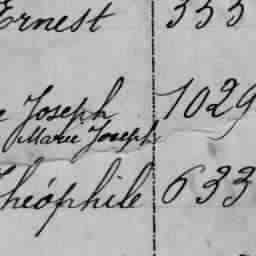 Ernest 333
Joseph 1029
Marie Joseph
Théophile 633